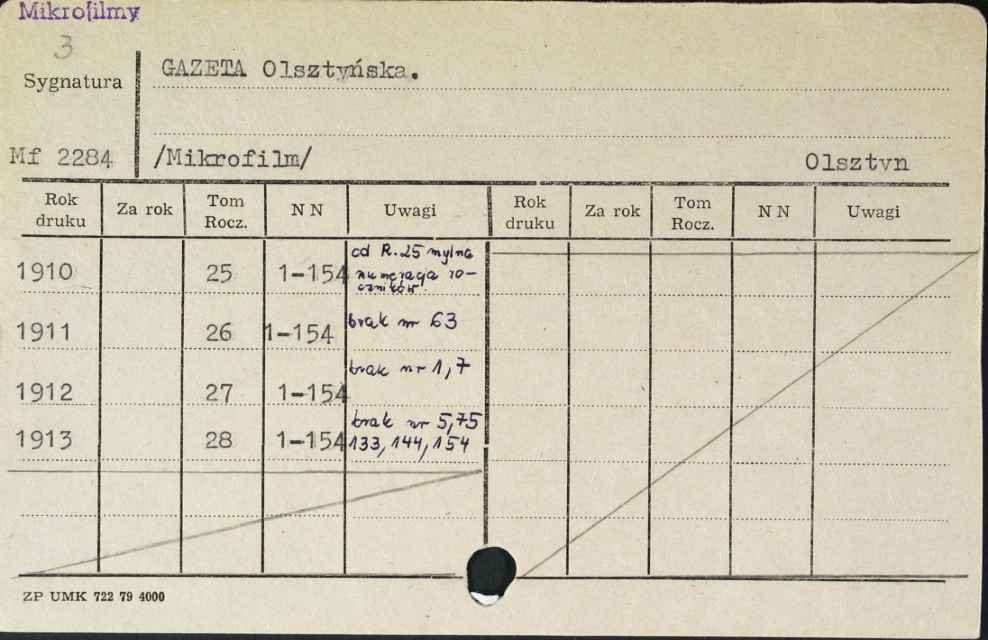 Mikrofilmy
3
Sygnatura
GAZETA Olsztyńska.
Mf 2284
/Mikrofilm/
Olsztyn
Rok druku Za rok Tom Rocz. N N Uwagi Rok druku Za rok Tom Rocz. N N Uwagi
1910 25 1-154 od R.25 mylna
numeracja ro-
czników.
1911 26 1-154 brak nr 63
1912 27 1-154 brak nr 1,7
1913 28 1-154 brak nr 5,75
133, 144, 154
ZP UMK 722 79 4000